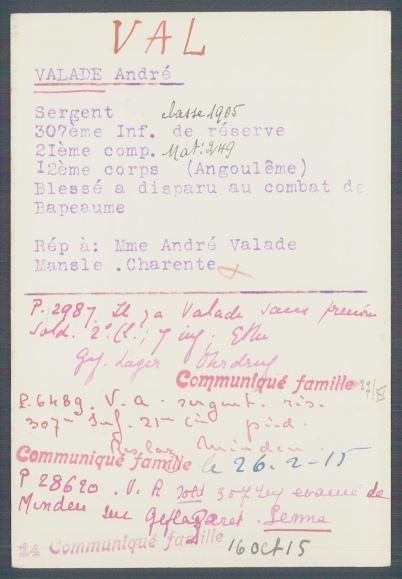 VAL
VALADE André
Sergent classe 1905
307ème Inf. de réserve
21ème comp. Mat: 249
12ème corps (Angoulême)
Blessé a disparu au combat de
Bapeaume
Rép à: Mme André Valade
Mansle .Charente
P. 2987. Il y a Valade sans prénom
Sold. 2e Cl., 7 inf.
Gef. Lager Ohrdruf
Communiqué famille
P. 6489. V. A. sergent. rés.
307me Inf. 21me Cie
Minden.
Communiqué famille le 26.2-15
P 28620. V. A sold 307 Inf evacué de
Minden sur Geflazaret. Senne
24 Communiqué famille 16 Oct 15